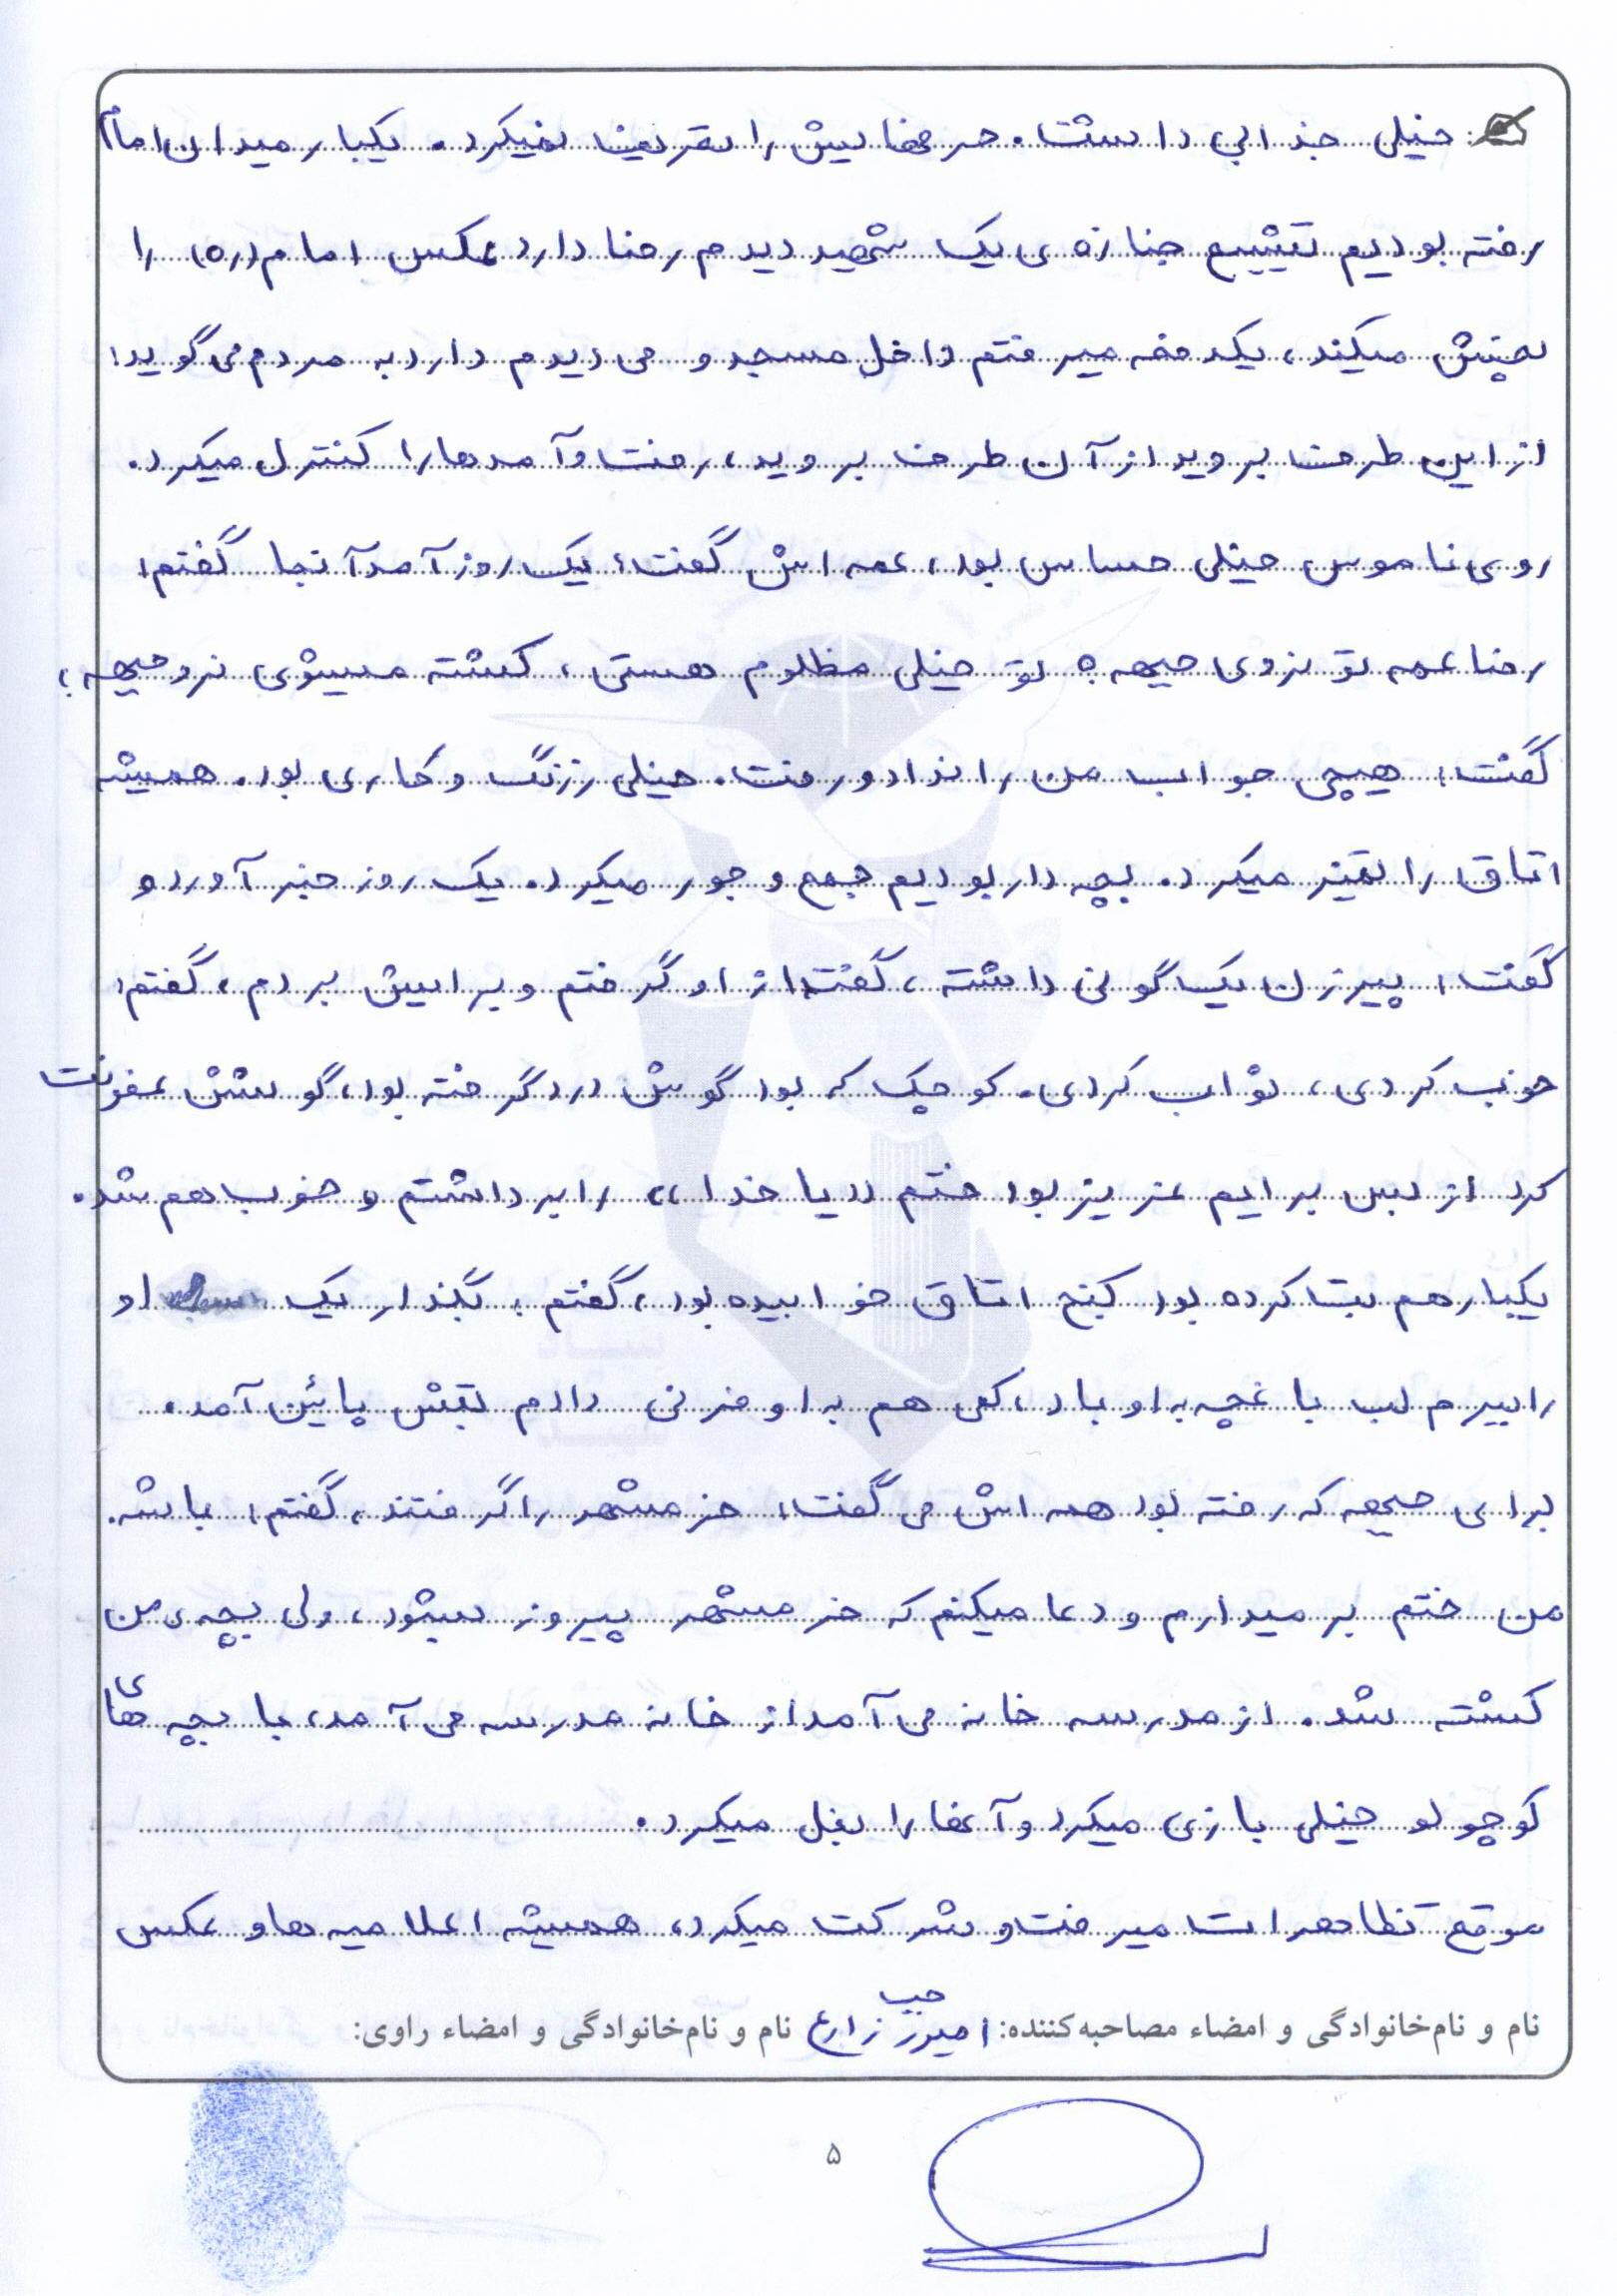 خیلی جذابی داشت. حرفهایش را تعریف نمیکرد. یکبار میدان امام
رفته بودیم تشییع جنازه ی یک شهید دیدم رضا دارد عکس امام (ره) را
پخش میکند، یکدفعه میرفتم داخل مسجد و می دیدم دارد به مردم می گوید:
از این طرف بروید از آن طرف بروید، رفت و آمدها را کنترل میکرد.
روی ناموس خیلی حساس بود، عمه اش گفت: یک روز آمد آنجا گفتم:
رضا عمه تو نروی جبهه؟ تو خیلی مظلوم هستی، کشته میشوی نرو جبهه؛
گفت: هیچی جواب من را نداد و رفت. خیلی زرنگ و کاری بود. همیشه
اتاق را تمیز میکرد. بچه دار بودیم جمع و جور میکرد. یک روز خبر آورد و
گفت: پیرزن یک گونی داشته، گفت از او گرفتم و برایش بردم، گفتم:
خوب کردی، ثواب کردی. کوچک که بود گوش درد گرفته بود، گوشش عفونت
کرد از بس برایم عزیز بود ختم «یا خدا» را برداشتم و خوب هم شد.
یکبار هم تب کرده بود کنج اتاق خوابیده بود، گفتم: بگذار یک او
را ببرم لب باغچه به او باد، کمی هم به او فرنی دادم تبش پائین آمد.
برای جبهه که رفته بود همه اش می گفت: خرمشهر را گرفتند، گفتم: باشه.
من ختم برمیدارم و دعا میکنم که خرمشهر پیروز بشود، ولی بچه ی من
کشته شد. از مدرسه خانه می آمد از خانه مدرسه می آمد، با بچه های
کوچولو خیلی بازی میکرد و آنها را بغل میکرد.
موقع تظاهرات میرفت و شرکت میکرد، همیشه اعلامیه ها و عکس
نام و نام‌خانوادگی و امضاء مصاحبه‌کننده: زارع نام و نام‌خانوادگی و امضاء راوی:
۵